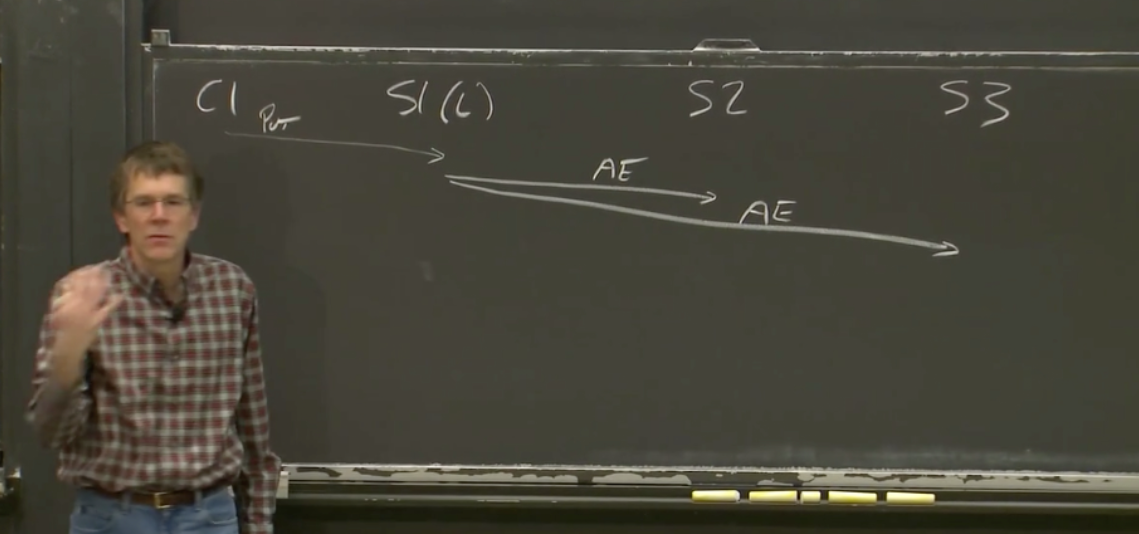 C1 S1(L) S2 S3
Put
AE
AE